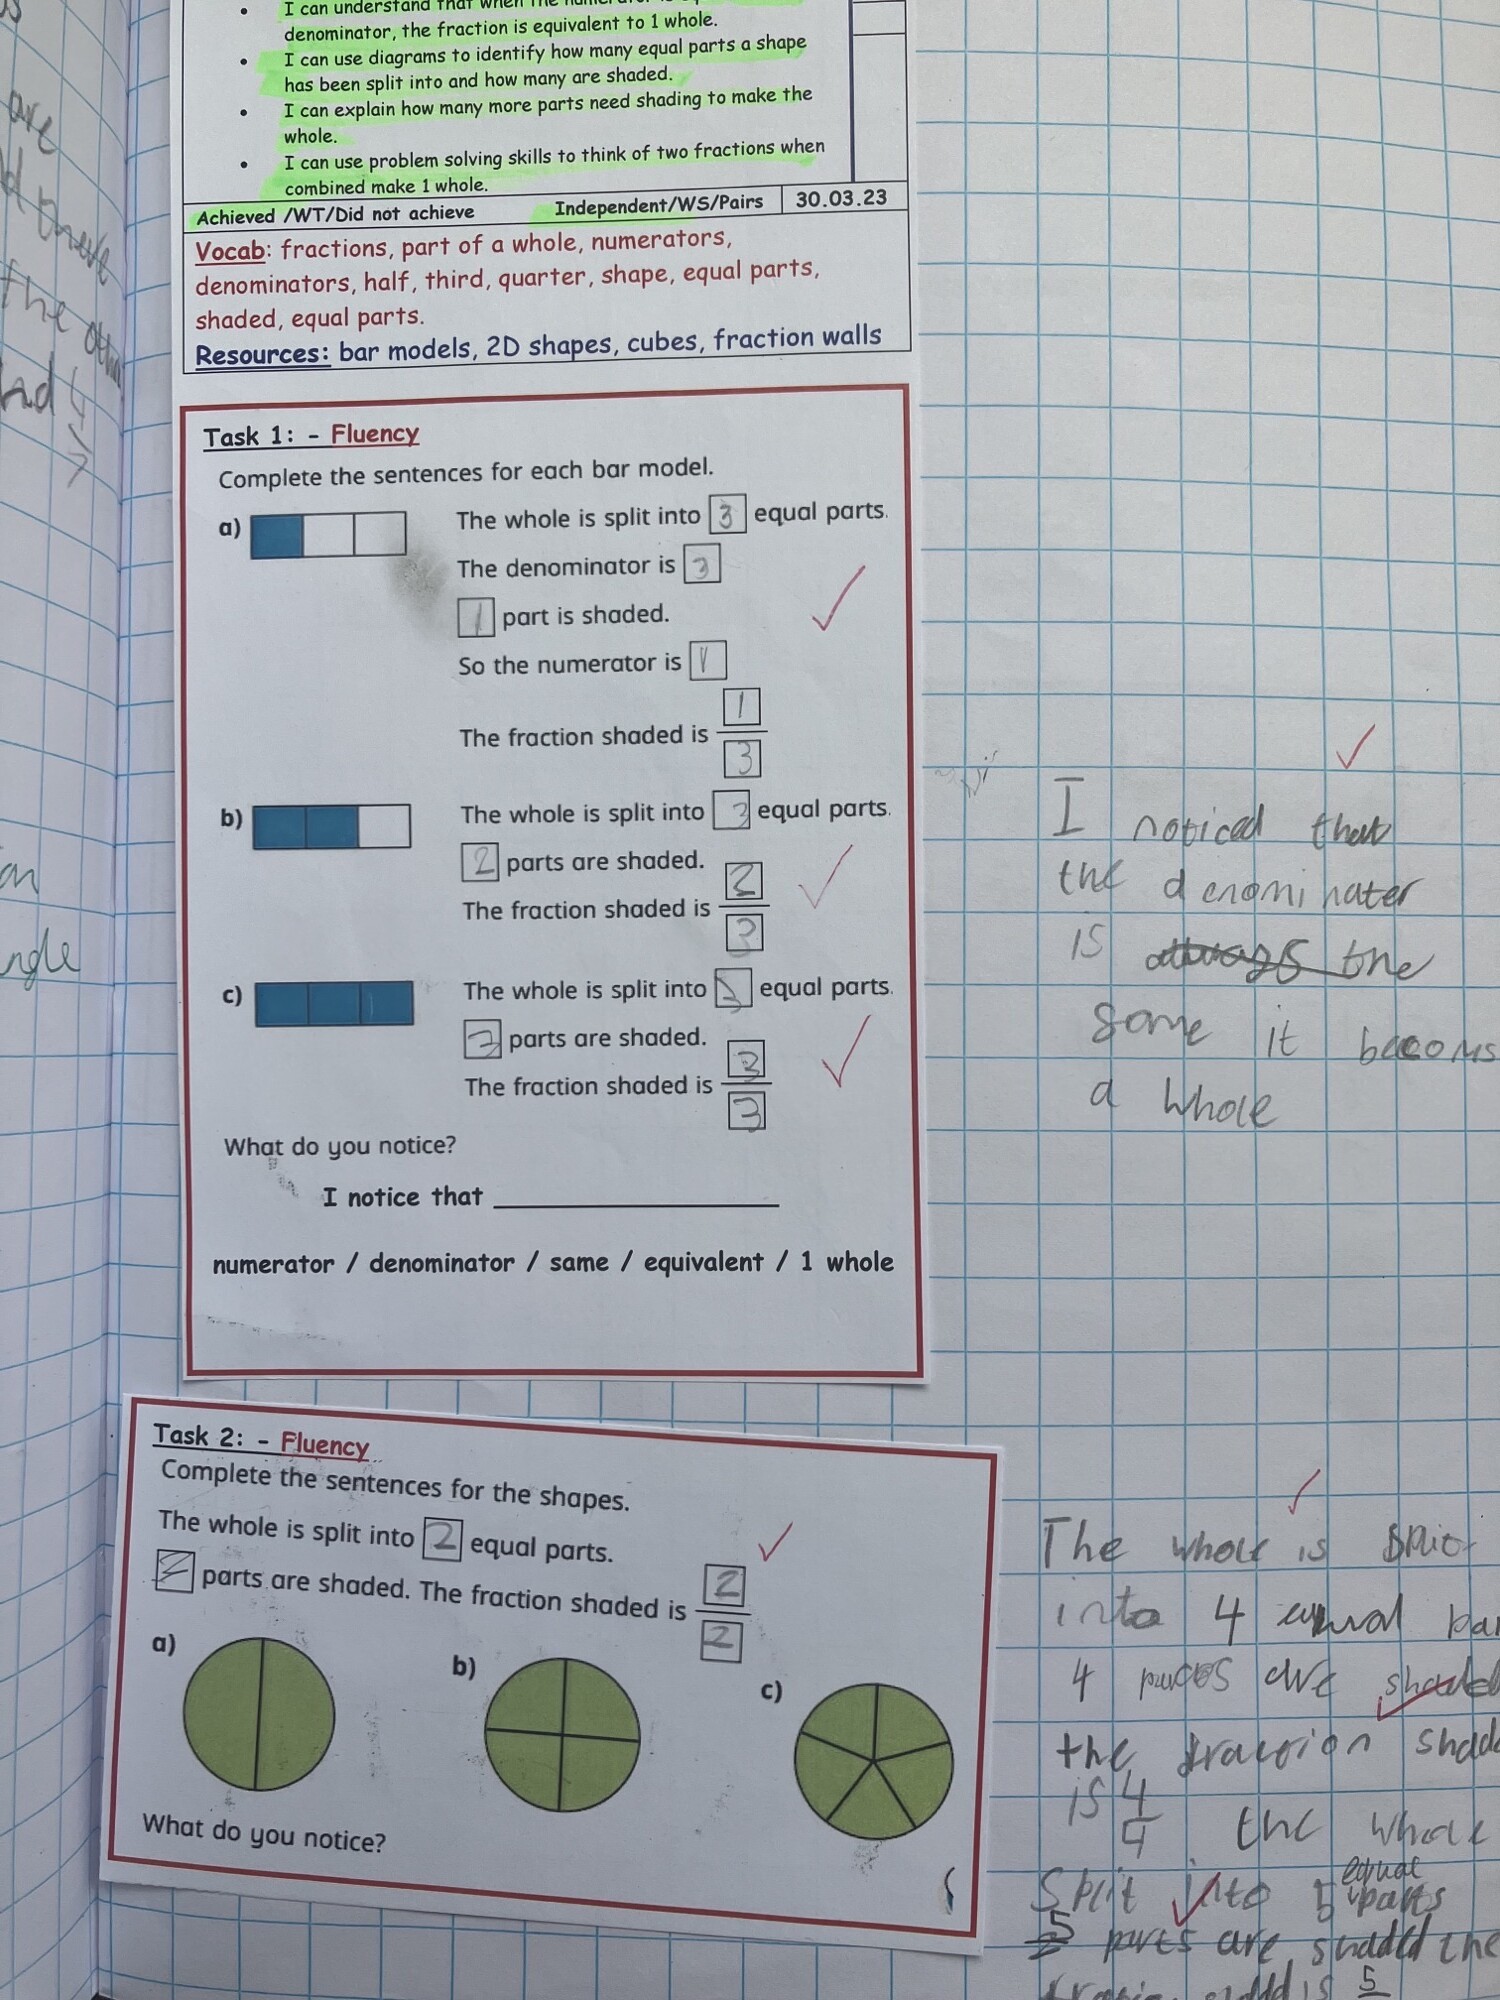 I can understand that when the numerator is
denominator, the fraction is equivalent to 1 whole.
I can use diagrams to identify how many equal parts a shape
has been split into and how many are shaded.
I can explain how many more parts need shading to make the
whole.
I can use problem solving skills to think of two fractions when
combined make 1 whole.
Achieved /WT/Did not achieve Independent/WS/Pairs 30.03.23
Vocab: fractions, part of a whole, numerators,
denominators, half, third, quarter, shape, equal parts,
shaded, equal parts.
Resources: bar models, 2D shapes, cubes, fraction walls
Task 1: - Fluency
Complete the sentences for each bar model.
a) The whole is split into 3 equal parts.
The denominator is 3
1 part is shaded.
So the numerator is 1
The fraction shaded is 1/3
b) The whole is split into 3 equal parts.
2 parts are shaded.
The fraction shaded is 2/3
c) The whole is split into 3 equal parts.
3 parts are shaded.
The fraction shaded is 3/3
What do you notice?
I notice that
numerator / denominator / same / equivalent / 1 whole
I noticed that
the denominater
is the
same it becoms
a whole
Task 2: - Fluency
Complete the sentences for the shapes.
The whole is split into 2 equal parts.
2 parts are shaded. The fraction shaded is 2/2
a) b) c)
What do you notice?
The whole is split
into 4 equal
4 are shaded
the fraction
is 4/4 the whole
Split into 5 equal parts
5 parts are shaded the
is 5
are
the
and 4